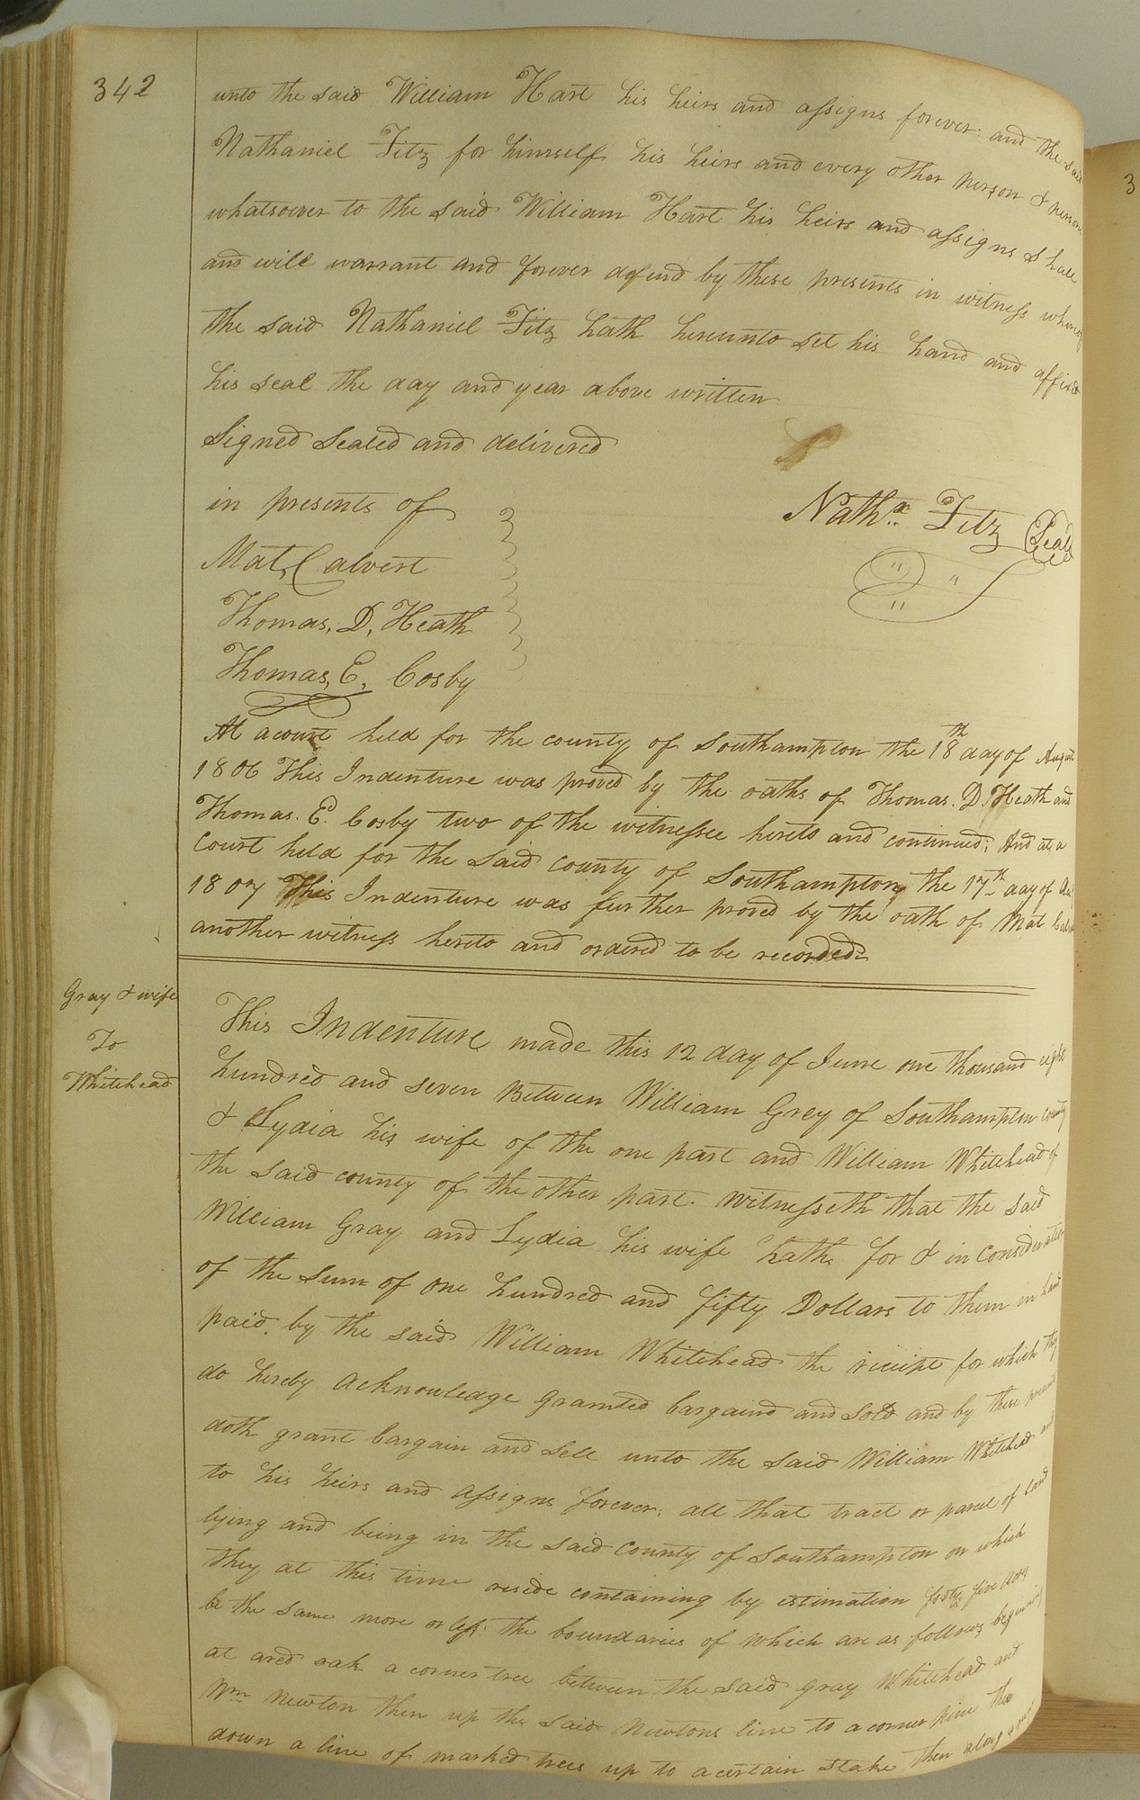 342
unto the said William Hart his heirs and assigns forever. and the said
Nathaniel Fitz for himself his heirs and every other person & persons
whatsoever to the said William Hart his heirs and assigns shall
and will warrant and forever defend by these presents in witness whereof
the said Nathaniel Fitz hath hereunto set his hand and affixed
his seal the day and year above written
Signed Sealed and delivered
in presents of
Nath.^l Fitz Seal
Mat, Calvert
Thomas, D, Heath
Thomas, E, Cosby
At a court held for the county of Southampton the 18th day of August
1806 This Indenture was proved by the oaths of Thomas. D. Heath and
Thomas. E. Cosby two of the witnesse hereto and continued. And at a
Court held for the said county of Southampton, the 17th day of
1807 This Indenture was further proved by the oath of Mat
another witness hereto and ordered to be recorded.
Gray & wife
To
Whitehead
This Indenture made this 12 day of June one thousand eight
hundred and seven Between William Grey of Southampton county
& Lydia his wife of the one part and William Whitehead of
the said county of the other part. Witnesseth that the said
William Gray and Lydia his wife hath for & in consideration
of the sum of one hundred and fifty Dollars to them in hand
paid. by the said William Whitehead the receipt for which they
do hereby acknowledge granted bargaind and sold and by these presents
doth grant bargain and sell unto the said William Whitehead and
to his heirs and assigns forever. all that tract or parcel of land
lying and being in the said county of Southampton on which
they at this time reside containing by estimation forty five acres
be the same more or less. the boundaries of which are as follows begining
at a red oak a corner tree between the said Gray Whitehead and
Wm Newton then up the said Newtons line to a corner pine then
down a line of marked trees up to a certain stake then along